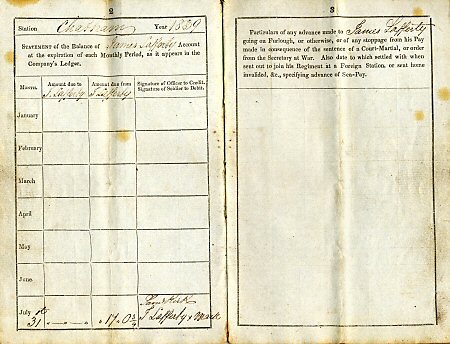 2
Station Chatham Year 1839
STATEMENT of the Balance of James Lafferty Account
at the expiration of each Monthly Period, as it appears in the
Company's Ledger.
MONTHS. Amount due to Amount due from Signature of Officer to Credit, Signature of Soldier to Debit.
J. Lafferty J Lafferty
January
February
March
April
May
June
July
31st " 17 " 0¾ J Lafferty x Mark
3
Particulars of any advance made to James Lafferty
going on Furlough, or otherwise, or of any stoppage from his Pay
made in consequence of the sentence of a Court-Martial, or order
from the Secretary at War. Also date to which settled with when
sent out to join his Regiment at a Foreign Station, or sent home
invalided, &c., specifying advance of Sea-Pay.